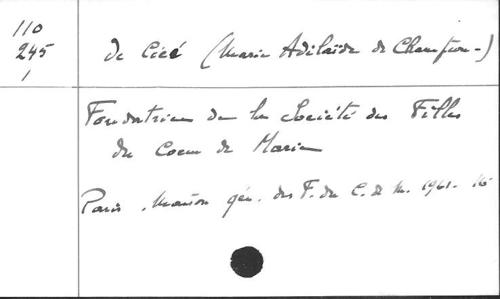 110
245
1
de Cicé (Marie Adélaïde de Champion-)
Fondatrice de la Société des Filles
du Coeur de Marie
Paris. Maison gén. des F. du C. de M. 1961. 16